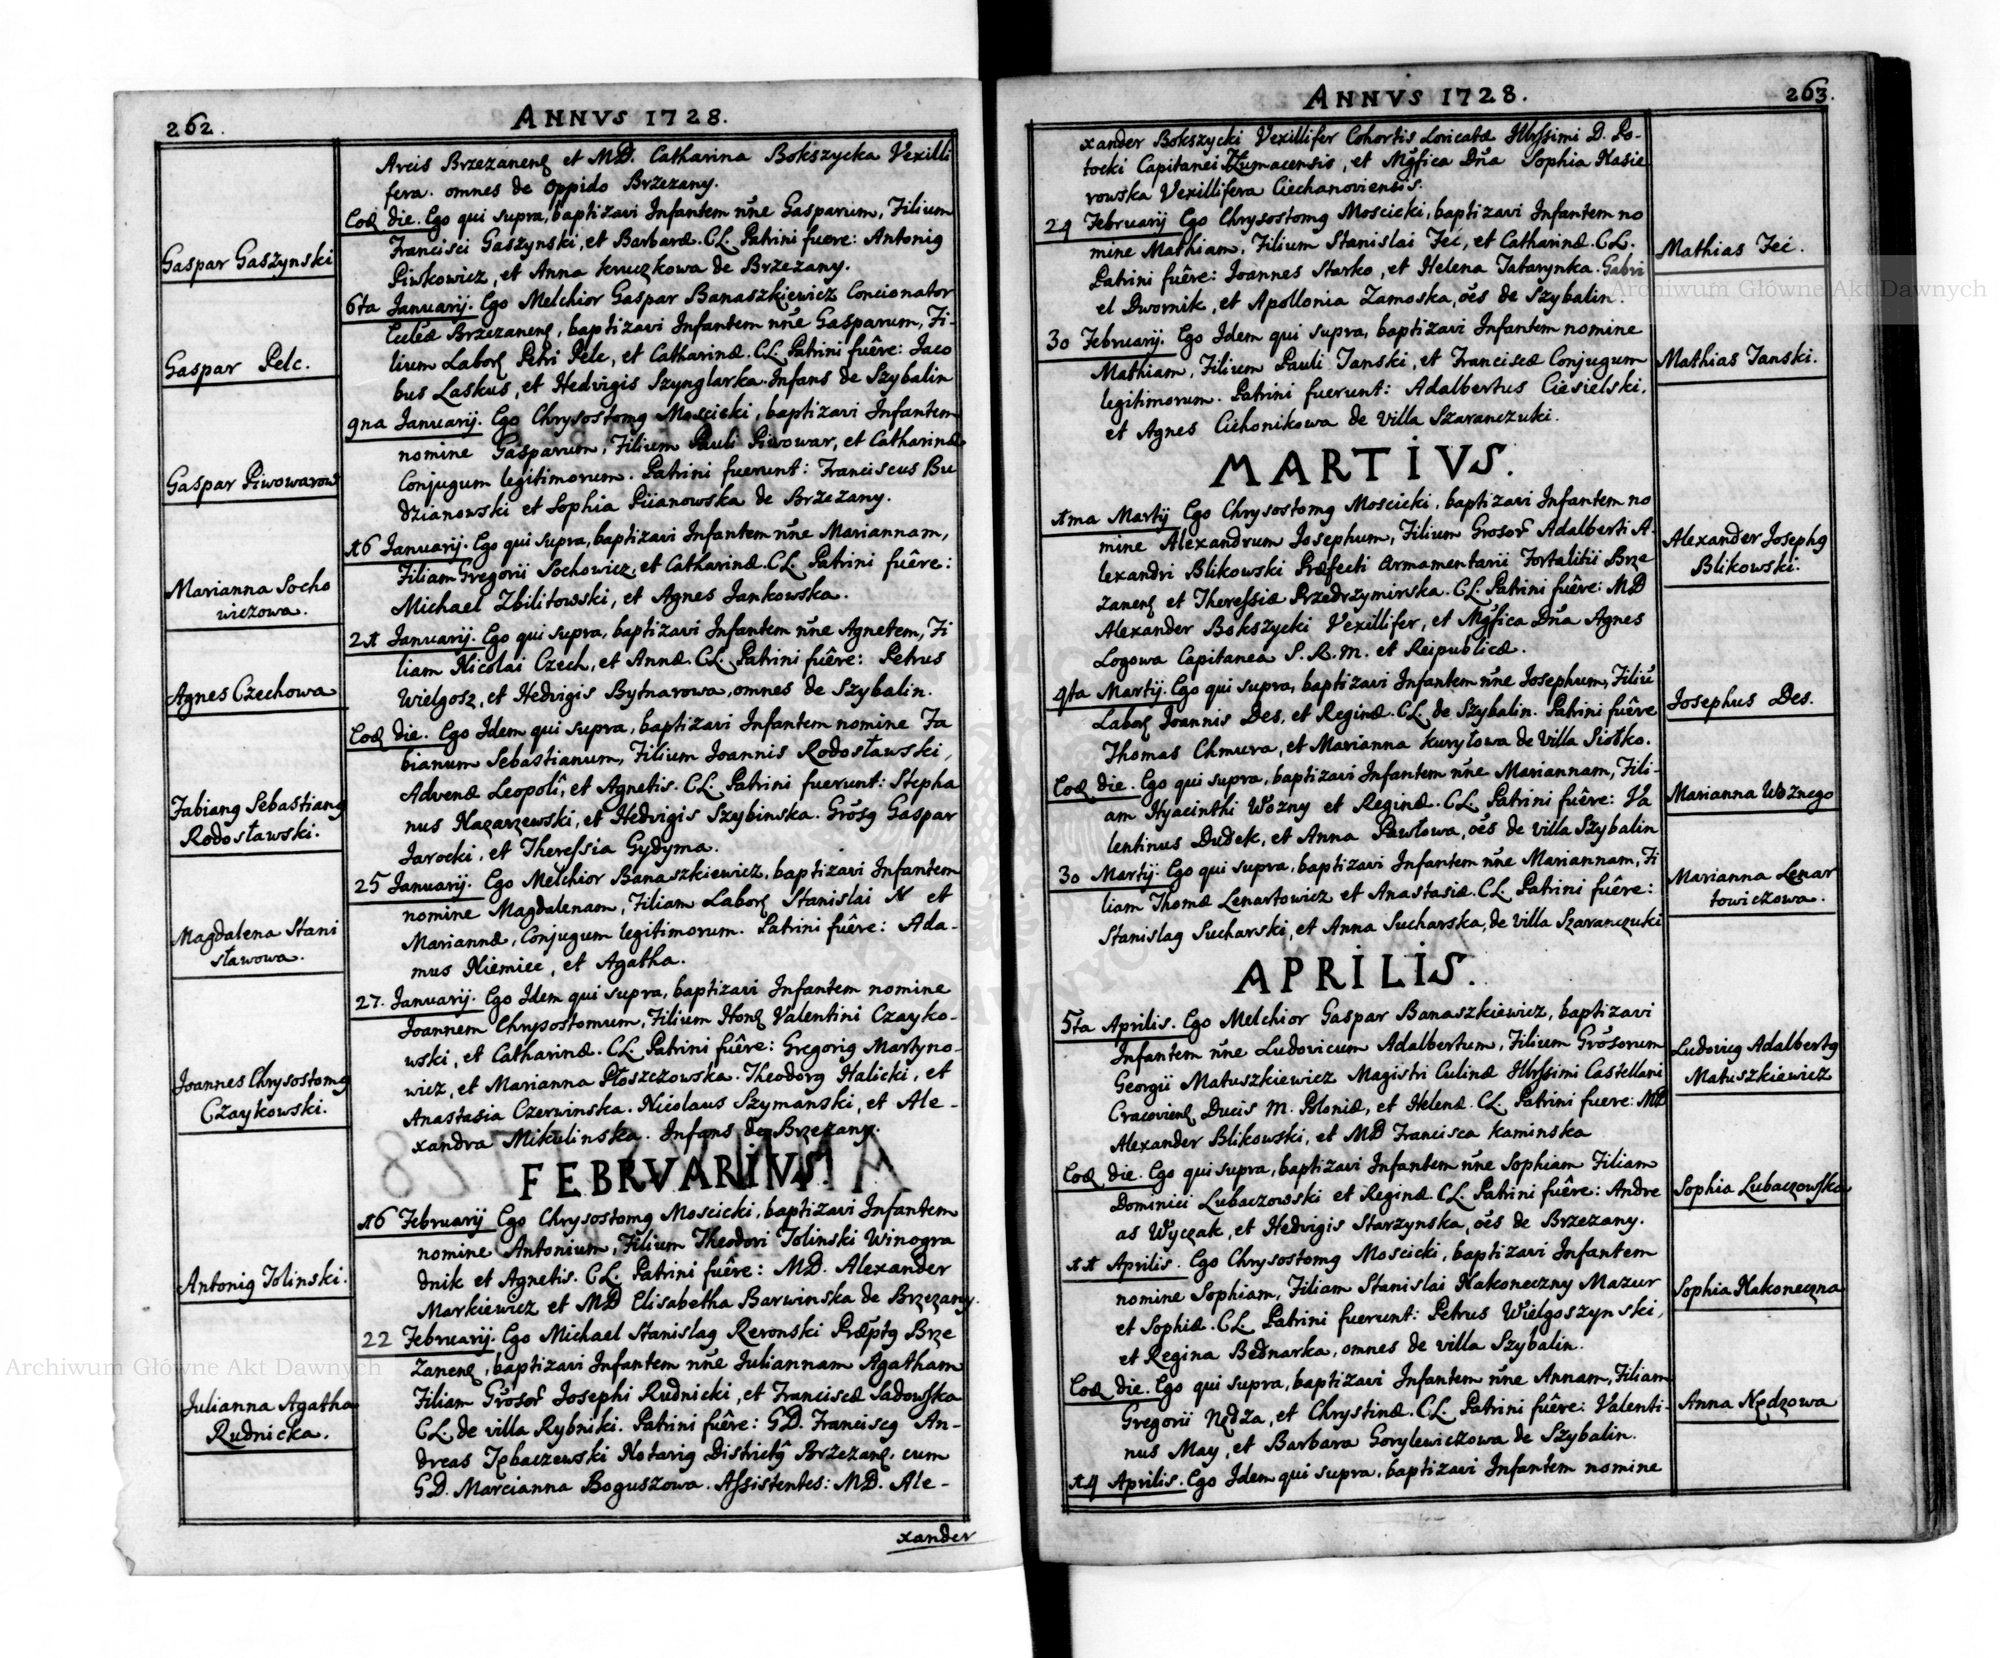 262.
ANNVS 1728.
Arcis Brzezanenꝫ et MD. Catharina Bokszycka Vexilli
fera. omnes de Oppido Brzezany.
Gaspar Gaszynski
Eoꝫ die. Ego qui supra, baptizavi Infantem nñe Gasparum, Filium
Francisci Gaszynski, et Barbaræ. CL. Patrini fuere: Antoniꝯ
Piwkowicz, et Anna Kruczkowa de Brzezany.
Gaspar Pelc.
6ta Januarij. Ego Melchior Gaspar Banaszkiewicz Concionator
Ecclêæ Brzezanenꝫ, baptizavi Infantem nñe Gasparum, Fi-
lium Laborꝫ Petri Pelc, et Catharinæ. CL. Patrini fuêre: Jaco
bus Laskus, et Hedvigis Szynglarka. Infans de Szybalin
Gaspar Piwowarow
9na Januarij. Ego Chrysostomꝯ Moscicki, baptizavi Infantem
nomine Gasparum, Filium Pauli Piwowar, et Catharinæ
Conjugum legitimorum. Patrini fuerunt: Franciscus Bu
dzianowski et Sophia Piianowska de Brzezany.
Marianna Socho
wiczowa.
16 Januarij. Ego qui supra, baptizavi Infantem nñe Mariannam,
Filiam Gregorii Sochowicz, et Catharinæ. CL. Patrini fuêre:
Michael Zbilitowski, et Agnes Jankowska.
Agnes Czechowa
21 Januarij. Ego qui supra, baptizavi Infantem nñe Agnetem, Fi
liam Nicolai Czech, et Annæ. CL. Patrini fuêre: Petrus
Wielgosz, et Hedvigis Bytnarowa, omnes de Szybalin.
Fabianꝯ Sebastianꝯ
Rodosławski.
Eoꝫ die. Ego Idem qui supra, baptizavi Infantem nomine Fa
bianum Sebastianum, Filium Joannis Rodosławski,
Advenæ Leopolî, et Agnetis. CL. Patrini fuerunt: Stepha
nus Nazarzewski, et Hedvigis Szybinska. Grõsꝯ Gaspar
Jarocki, et Theressia Gydyma.
Magdalena Stani
sławowa.
25 Januarij. Ego Melchior Banaszkiewicz, baptizavi Infantem
nomine Magdalenam, Filiam Laborꝫ Stanislai N et
Mariannæ, Conjugum legitimorum. Patrini fuêre: Ada-
mus Niemiec, et Agatha.
Joannes Chrysostomꝯ
Czaykowski.
27. Januarij. Ego Idem qui supra, baptizavi Infantem nomine
Joannem Chrysostomum, Filium Honꝫ Valentini Czayko-
wski, et Catharinæ. CL. Patrini fuêre: Gregoriꝯ Martyno-
wicz, et Marianna Płoszczowska. Theodorꝯ Halicki, et
Anastasia Czerwinska. Nicolaus Szymanski, et Ale-
xandra Mikulinska. Infans de Brzezany.
FEBRVARIVS.
Antoniꝯ Tolinski.
16 Februarij Ego Chrysostomꝯ Moscicki, baptizavi Infantem
nomine Antonium, Filium Theodori Tolinski Winogra
dnik et Agnetis. CL. Patrini fuêre: MD. Alexander
Markiewicz et MD Elisabetha Barwinska de Brzezany.
Julianna Agatha
Rudnicka.
22 Februarij. Ego Michael Stanislaꝯ Reronski Præptꝯ Brze
zanenꝫ, baptizavi Infantem nñe Juliannam Agatham
Filiam Grõsor̃ Josephi Rudnicki, et Franciscæ Sadowska
CL. de villa Rybniki. Patrini fuêre: GD. Franciscꝯ An-
dreas Tębaczewski Notariꝯ Districtꝯ Brzezanꝫ. cum
GD. Marcianna Boguszowa. Assistentes: MD. Ale-
xander
ANNVS 1728.
263.
xander Bokszycki Vexillifer Cohortis Loricatæ Illrssimi D. Po-
tocki Capitanei Tlumacensis, et Mg̃fica Dña Sophia Nasie
rowska Vexillifera Ciechanoviensis.
Mathias Feć.
24 Februarij Ego Chrysostomꝯ Moscicki, baptizavi Infantem no
mine Mathiam, Filium Stanislai Feć, et Catharinæ. CL.
Patrini fuêre: Joannes Starko, et Helena Tatarynka. Gabri
el Dwornik, et Apollonia Zamoska, oẽs de Szybalin.
Mathias Janski.
30 Februarij. Ego Idem qui supra, baptizavi Infantem nomine
Mathiam, Filium Pauli Janski, et Franciscæ Conjugum
legitimorum. Patrini fuerunt: Adalbertus Ciesielski,
et Agnes Cichonikowa de Villa Szaranczuki.
MARTIVS.
Alexander Josephꝯ
Blikowski.
1ma Martij Ego Chrysostomꝯ Moscicki, baptizavi Infantem no
mine Alexandrum Josephum, Filium Grosor̃ Adalberti A-
lexandri Blikowski Præfecti Armamentarii Fortalitii Brze
zanenꝫ et Theressiæ Przedrzymirska. CL. Patrini fuêre: MD
Alexander Bokszycki Vexillifer, et Mg̃fica Dña Agnes
Logowa Capitanea S. R. M. et Reipublicæ.
Josephus Des.
4ta Martij. Ego qui supra, baptizavi Infantem nñe Josephum, Filiũ
Laborꝫ Joannis Des, et Reginæ. CL. de Szybalin. Patrini fuêre
Thomas Chmura, et Marianna Kuryłowa de Villa Siołko.
Marianna Woznego
Eoꝫ die. Ego qui supra, baptizavi Infantem nñe Mariannam, Fili-
am Hyacinthi Wozny et Reginæ. CL. Patrini fuêre: Va
lentinus Dudek, et Anna Pawłowa, oẽs de villa Szybalin
Marianna Lenar
towiczowa.
30 Martij. Ego qui supra, baptizavi Infantem nñe Mariannam, Fi
liam Thomæ Lenartowicz et Anastasiæ. CL. Patrini fuêre:
Stanislaꝯ Sucharski, et Anna Sucharska, de villa Szaranczuki
APRILIS.
Ludovicꝯ Adalbertꝯ
Matuszkiewicz
5ta Aprilis. Ego Melchior Gaspar Banaszkiewicz, baptizavi
Infantem nñe Ludovicum Adalbertum, Filium Grõsorum
Georgii Matuszkiewicz Magistri Culinæ Illrssimi Castellani
Cracovienꝫ Ducis M. Poloniæ, et Helenæ. CL. Patrini fuere: MD
Alexander Blikowski, et MD Francisca Kaminska
Sophia Lubaczowska
Eoꝫ die. Ego qui supra, baptizavi Infantem nñe Sophiam Filiam
Dominici Lubaczowski et Reginæ CL. Patrini fuêre: Andre
as Wyczak, et Hedvigis Starzynska, oẽs de Brzezany.
Sophia Nakoneczna
11 Aprilis. Ego Chrysostomꝯ Moscicki, baptizavi Infantem
nomine Sophiam, Filiam Stanislai Nakoneczny Mazur
et Sophiæ. CL Patrini fuerunt: Petrus Wielgoszynski,
et Regina Bednarka, omnes de villa Szybalin.
Anna Nędzowa
Eoꝫ die. Ego qui supra, baptizavi Infantem nñe Annam, Filiam
Gregorii Nędza, et Chrystinæ. CL. Patrini fuêre: Valenti-
nus May, et Barbara Gorylewiczowa de Szybalin.
14 Aprilis. Ego Idem qui supra, baptizavi Infantem nomine
Archiwum Główne Akt Dawnych
Archiwum Główne Akt Dawnych